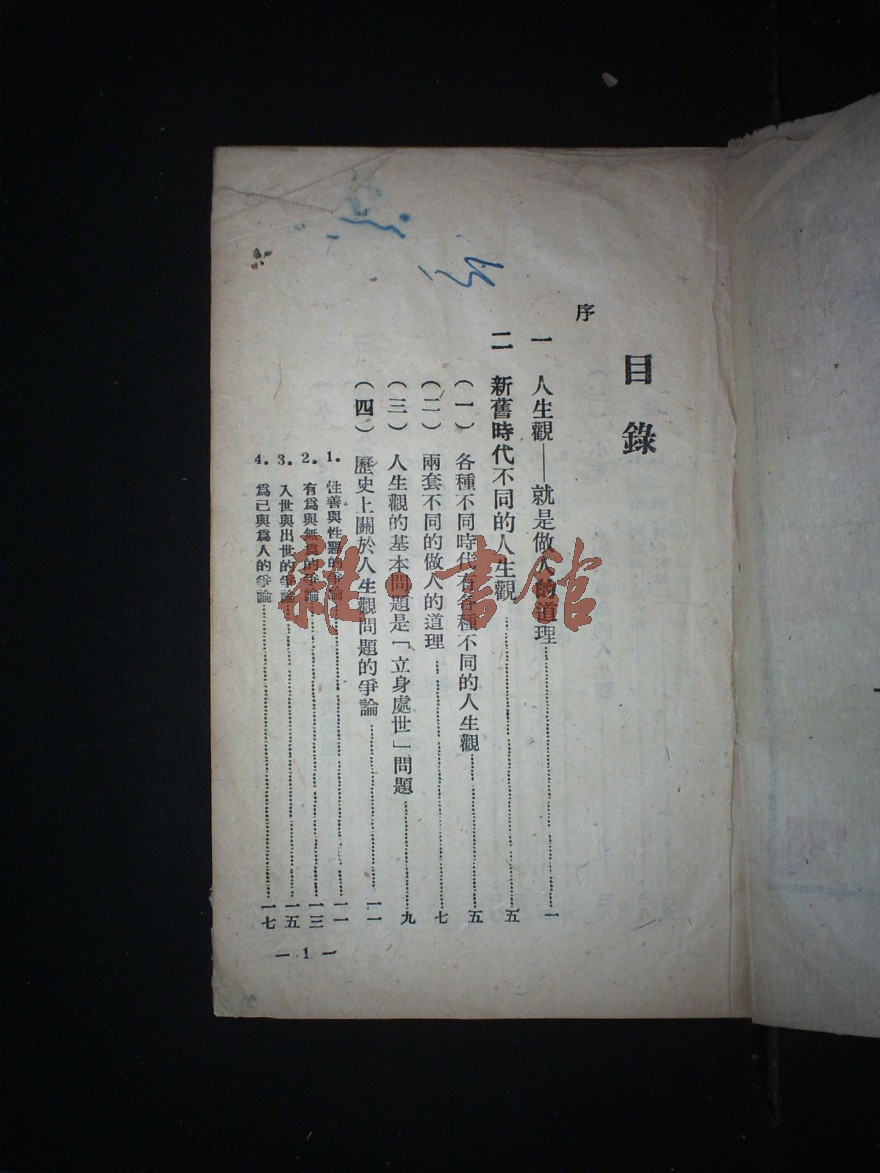 目錄
序
一 人生觀——就是做人的道理……一
二 新舊時代不同的人生觀……五
（一） 各種不同時代有各種不同的人生觀……五
（二） 兩套不同的做人的道理……七
（三） 人生觀的基本問題是「立身處世」問題……九
（四） 歷史上關於人生觀問題的爭論……一一
1. 性善與性惡的爭論……一一
2. 有爲與無爲的爭論……一三
3. 入世與出世的爭論……一五
4. 爲己與爲人的爭論……一七
— 1 —
雜·書館